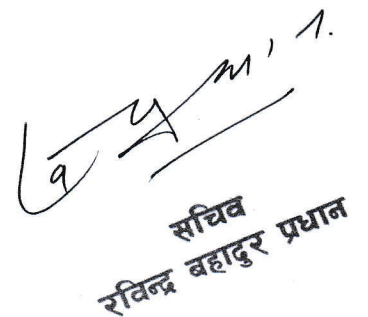 सचिव
रविन्द्र बहादुर प्रधान